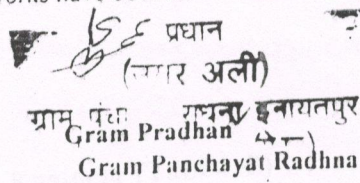 प्रधान
अली)
ग्राम इनायतपुर
Gram Pradhan
Gram Panchayat Radhna